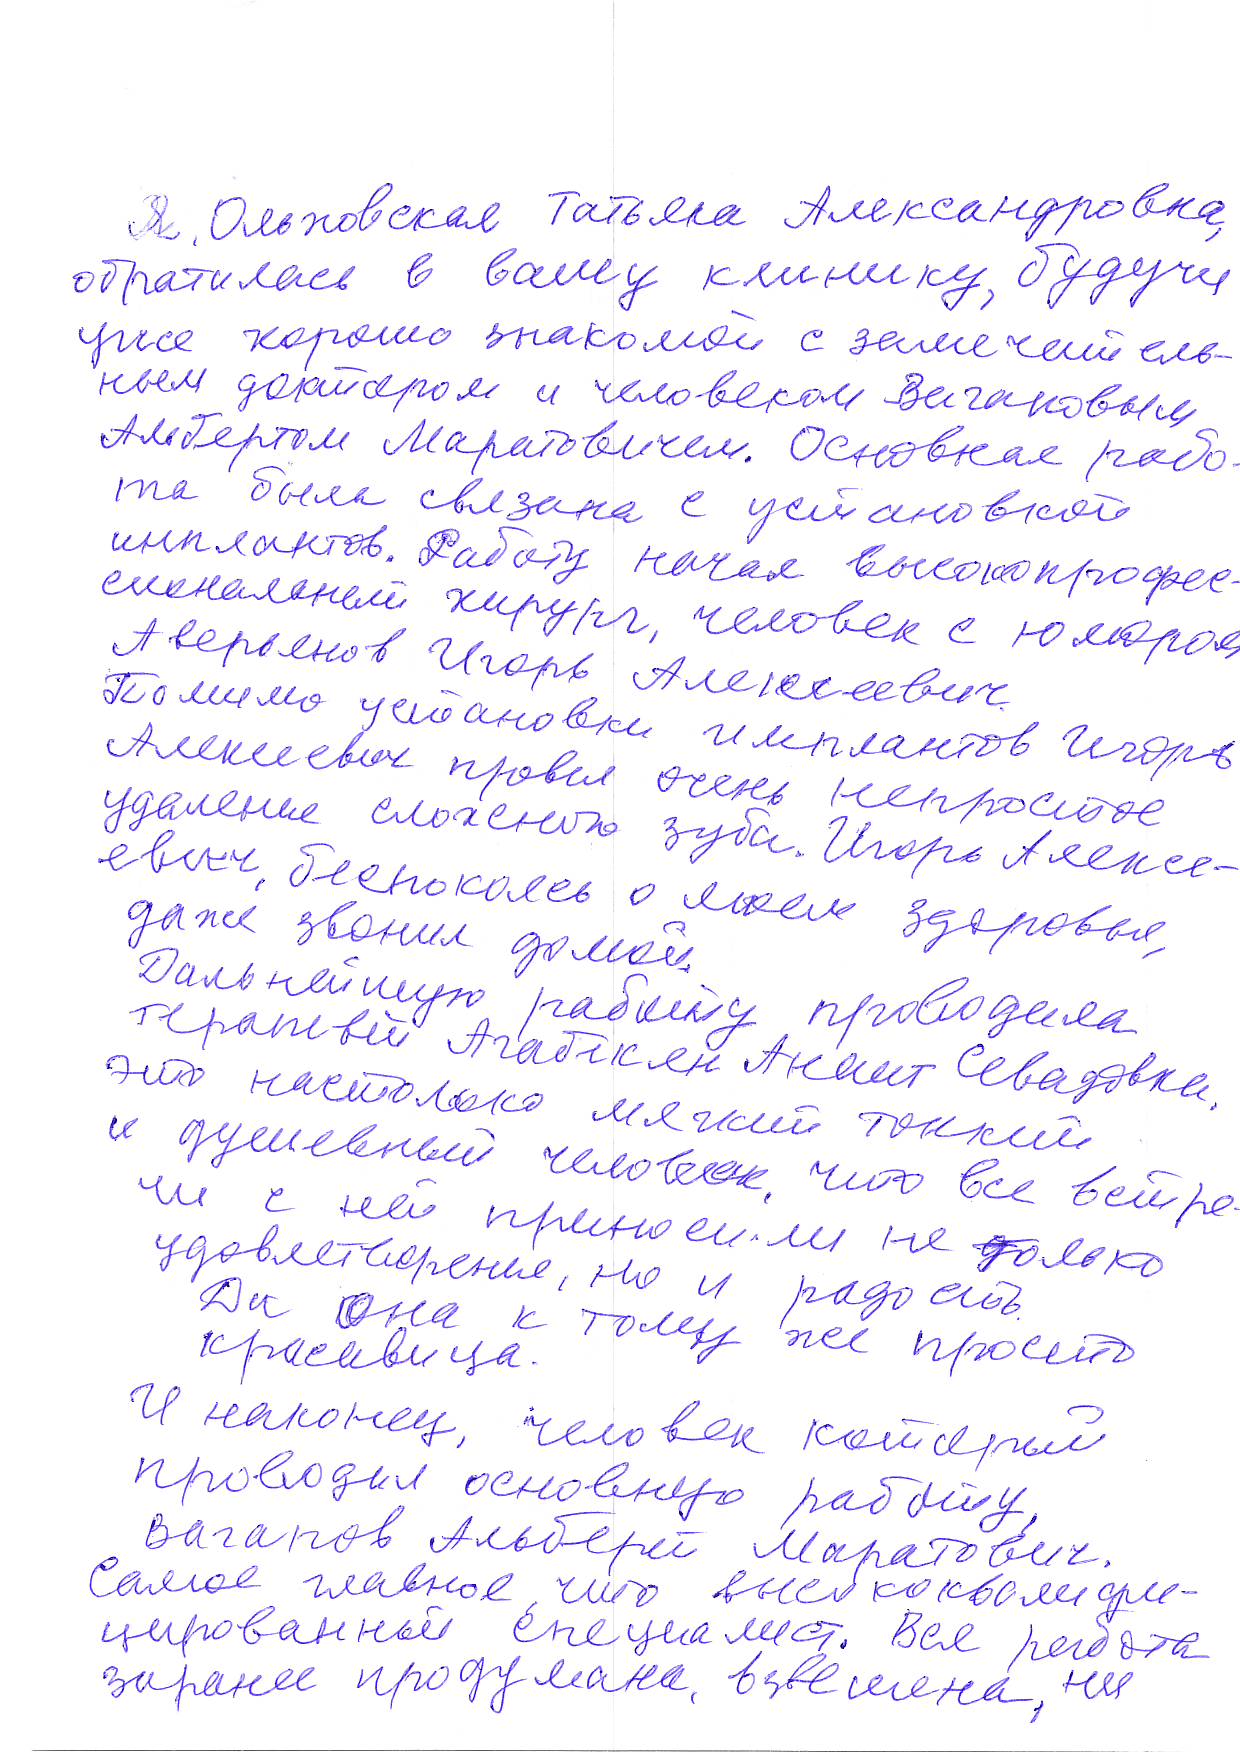 Я, Ольховская Татьяна Александровна,
обратилась в вашу клинику, будучи
уже хорошо знакомой с замечатель-
ным доктором и человеком Вагаповым
Альбертом Маратовичем. Основная рабо-
та была связана с установкой
имплантов. Работу начал высокопрофес-
сиональный хирург, человек с юмором
Аверьянов Игорь Алексеевич.
Помимо установки имплантов Игорь
Алексеевич провел очень непростое
удаление сложного зуба. Игорь Алексе-
евич, беспокоясь о моем здоровье,
даже звонил домой.
Дальнейшую работу проводила
терапевт Агабекян Анаит Севадовна.
Это настолько мягкий тонкий
и душевный человек, что все встре-
чи с ней приносили не только
удовлетворение, но и радость.
Да она к тому же просто
красавица.
И наконец, человек который
проводил основную работу,
Вагапов Альберт Маратович.
Самое главное, что высококвалифи-
цированный специалист. Вся работа
заранее продумана, взвешена, ни